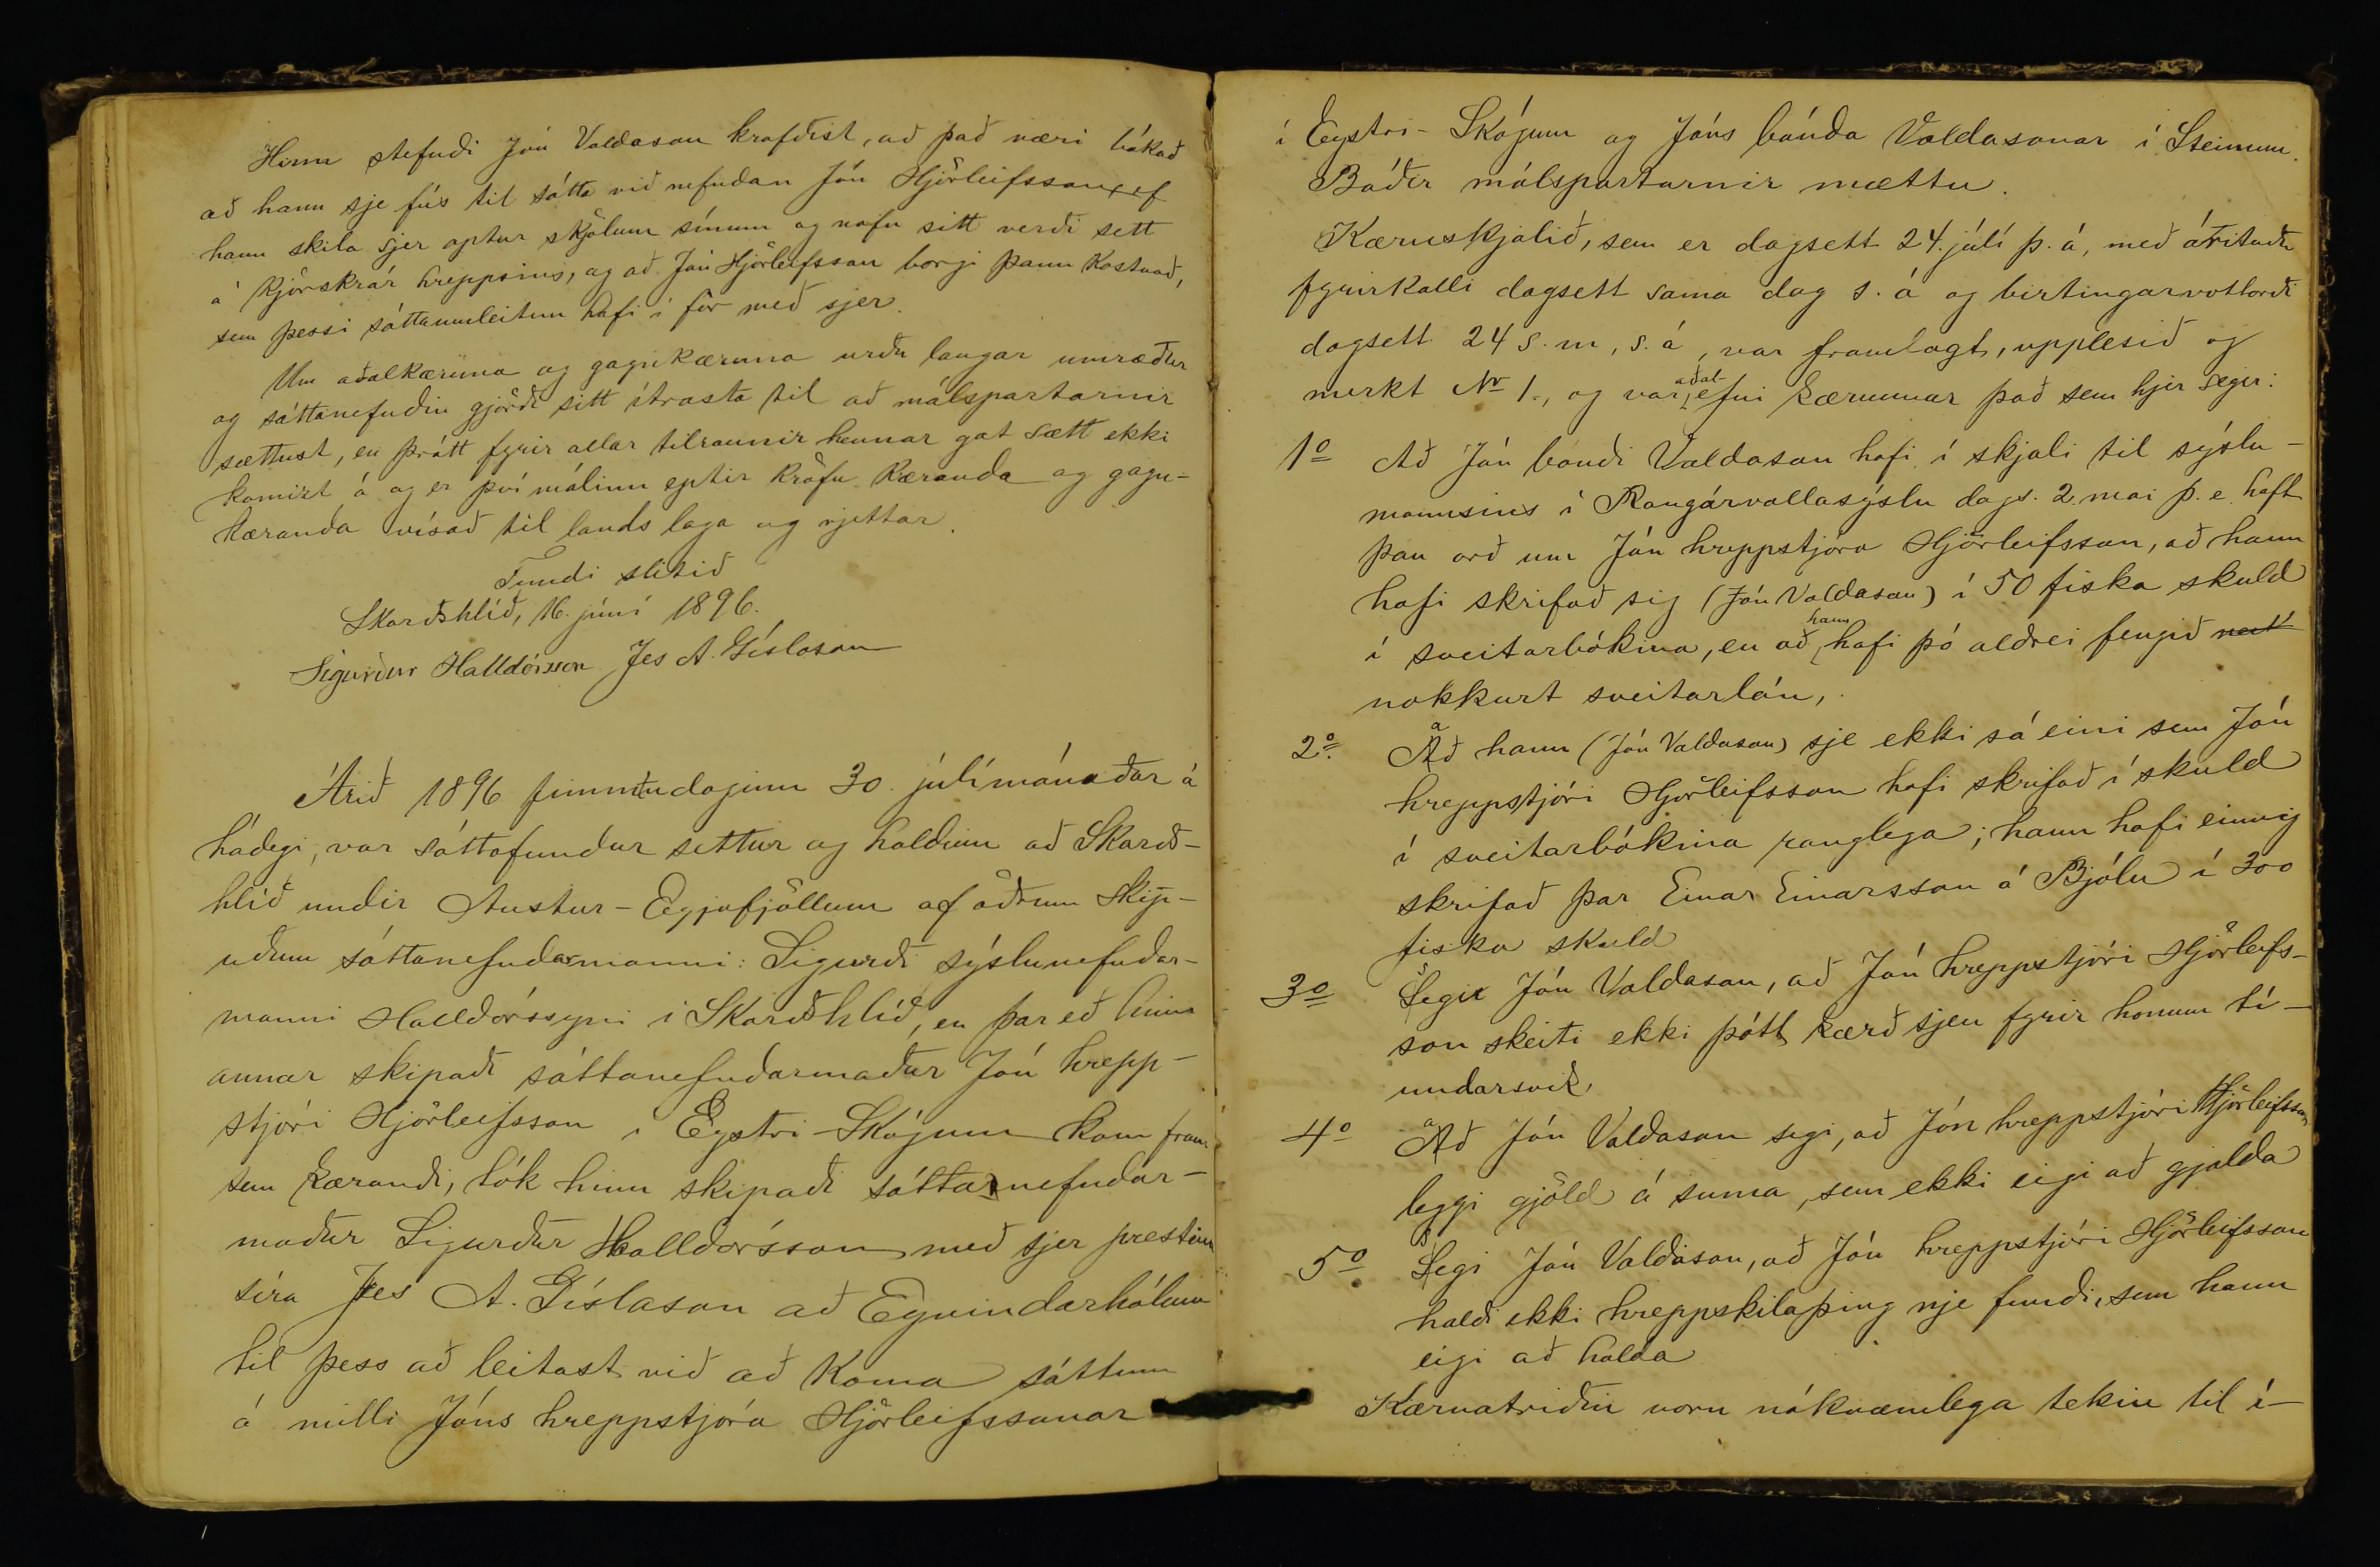 Hinn stefndi Jón Valdason krafðist, að það væri bókað
að hann sje fús til sátta við nefndan Jón Hjörleifsson, ef
hann skila sjer aptur skjölum sínum og nafn sitt verði sett
á kjörskrár hreppsins, og að Jón Hjörleifsson borgi þann kostnað,
sem þessi sáttaumleitun hafi í för með sjer.
Um aðalkæruna og gagnkæruna urðu langar umræður
og sáttanefndin gjörði sitt ítrasta til að málspartarnir
sættust, en þrátt fyrir allar tilraunir hennar gat sætt ekki
komizt á og er því málinu eptir kröfu kæranda og gagn-
kæranda vísað til lands laga og rjettar.
Fundi slitið
Skarðshlíð, 16. júní 1896.
Sigurður Halldórsson Jes A. Gíslason
Árið 1896 fimmtudaginn 30. júlímánaðar á
hádegi, var sáttafundur settur og haldinn að Skarðs-
hlíð undir Austur-Eyjafjöllum af öðrum skip-
uðum sáttanefndarmanni: Sigurði sýslunefndar-
manni Halldórssyni í Skarðshlíð, en þar eð hinn
annar skipaði sáttanefndarmaður Jón hrepp-
stjóri Hjörleifsson í Eystri-Skógum kom fram
sem kærandi, tók hinn skipaði sáttanefndar-
maður Sigurður Halldórsson með sjer prestinn
síra Jes A. Gíslason að Eyvindarhólum
til þess að leitast við að koma sáttum
á milli Jóns hreppstjóra Hjörleifssonar
í Eystri-Skógum og Jóns bónda Valdasonar í Steinum.
Báðir málspartarnir mættu.
Kæruskjalið, sem er dagsett 24. júlí þ. á, með árituðu
fyrirkalli dagsett sama dag s. á og birtingarvottorði
dagsett 24 s. m, s. á, var framlagt, upplesið og
merkt No 1., og var aðal-efni kærunnar það sem hjer segir:
1o Að Jón bóndi Valdason hafi í skjali til sýslu-
mannsins í Rangárvallasýslu dags. 2. mai þ. e. haft
þau orð um Jón hreppstjóra Hjörleifsson, að hann
hafi skrifað sig (Jón Valdason) í 50 fiska skuld
í sveitarbókina, en að hann hafi þó aldrei fengið
nokkurt sveitarlán,
2o. að hann (Jón Valdason) sje ekki sá eini sem Jón
hreppstjóri Hjörleifsson hafi skrifað í skuld
í sveitarbókina ranglega; hann hafi einnig
skrifað þar Einar Einarsson á Bjólu í 300
fiska skuld
3o Segir Jón Valdason, að Jón hreppstjóri Hjörleifs-
son skeiti ekki þótt kærð sjeu fyrir honum tí-
undarsvik
4o að Jón Valdason segi, að Jón hreppstjóri Hjörleifsson
leggi gjöld á suma, sem ekki eigi að gjalda
5o Segi Jón Valdason, að Jón hreppstjóri Hjörleifsson
haldi ekki hreppskilaþing nje fundi, sem hann
eigi að halda
Kæruatriðin voru nákvæmlega tekin til í-